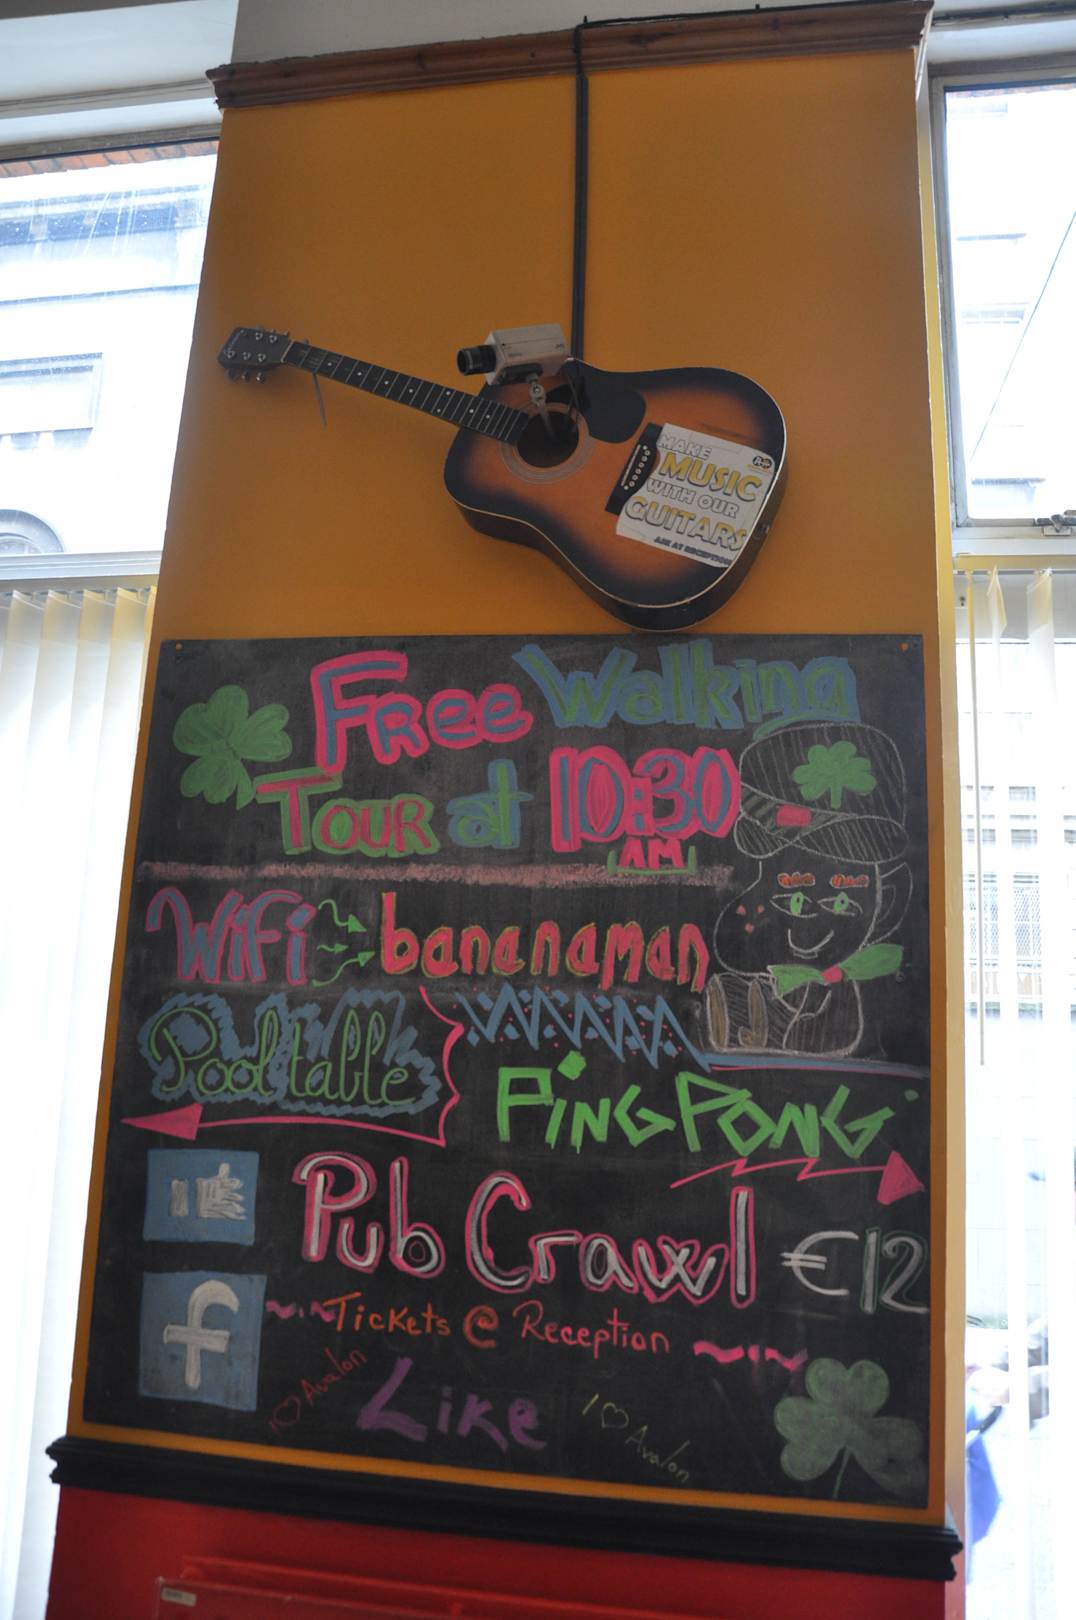 MAKE
MUSIC
WITH OUR
GUITARS
ASK AT RECEPTION
FREE Walking
TOUR at 10:30
AM
WiFi bananaman
Pooltable
PiNG PONG
Pub Crawl €12
Tickets @ Reception
I ♡ Avalon
Like
I ♡ Avalon
f